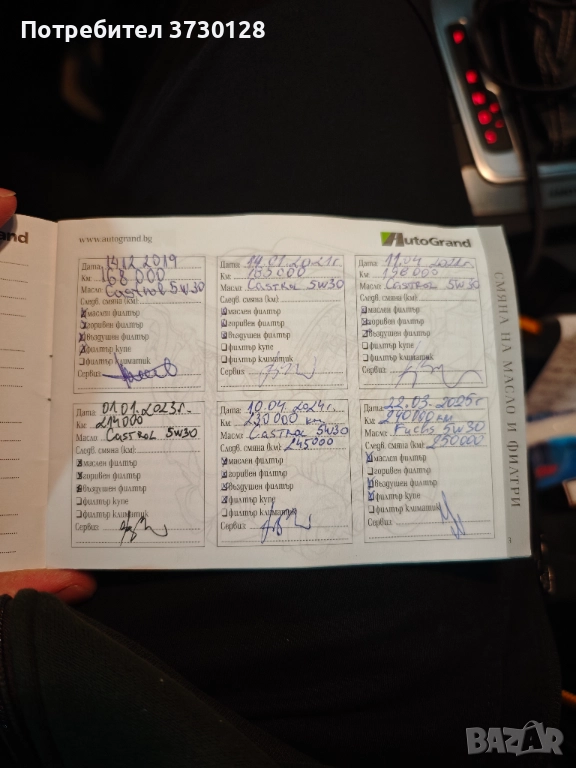 Потребител 3730128
and
www.autogrand.bg
AutoGrand
СМЯНА НА МАСЛО И ФИЛТРИ
Дата: 14.12.2019
Км: 168 000
Масло: Castrol 5W30
Следв. смяна (км):
маслен филтър
горивен филтър
въздушен филтър
филтър купе
филтър климатик
Сервиз:
Дата: 14.01.2021г.
Км: 183000
Масло: Castrol 5W30
Следв. смяна (км):
маслен филтър
горивен филтър
въздушен филтър
филтър купе
филтър климатик
Сервиз:
Дата: 11.04.2022г.
Км: 198 000
Масло: Castrol 5W30
Следв. смяна (км):
маслен филтър
горивен филтър
въздушен филтър
филтър купе
филтър климатик
Сервиз:
Дата: 01.01.2023г.
Км: 214000
Масло: Castrol 5W30
Следв. смяна (км):
маслен филтър
горивен филтър
въздушен филтър
филтър купе
филтър климатик
Сервиз:
Дата: 10.04.2024г.
Км: 230000 км
Масло: Castrol 5W30
Следв. смяна (км): 245000
маслен филтър
горивен филтър
въздушен филтър
филтър купе
филтър климатик
Сервиз:
Дата: 22.03.2025г
Км: 240000км
Масло: Fuchs 5W30
Следв. смяна (км): 250000
маслен филтър
горивен филтър
въздушен филтър
филтър купе
филтър климатик
Сервиз:
BAZAR